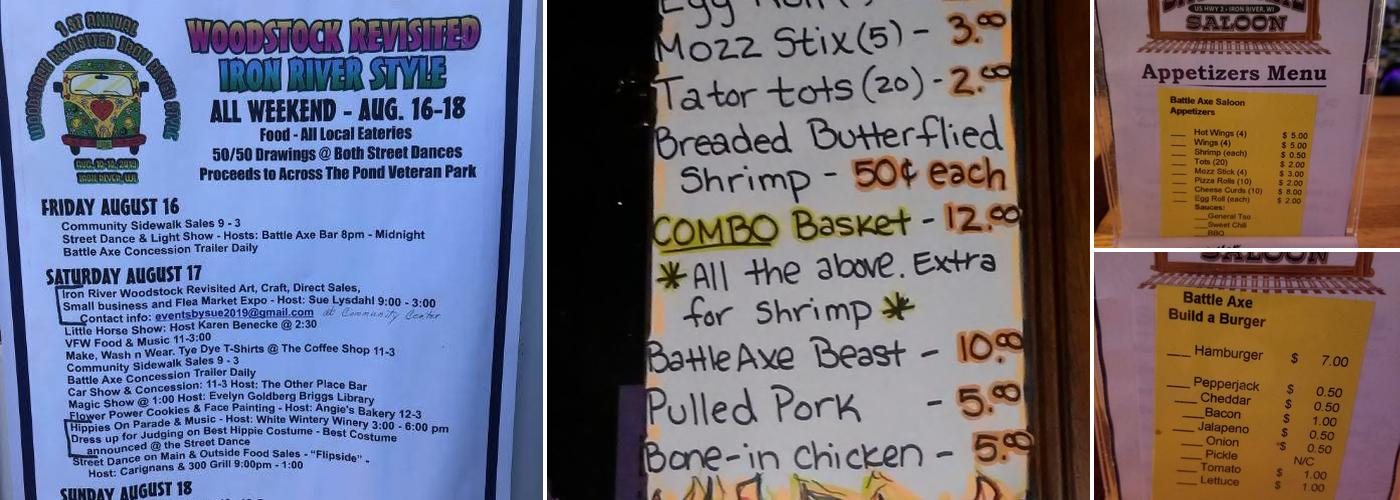 1ST ANNUAL
WOODSTOCK REVISITED IRON RIVER STYLE
AUG. 16-18, 2019
IRON RIVER, WI
WOODSTOCK REVISITED
IRON RIVER STYLE
ALL WEEKEND - AUG. 16-18
Food - All Local Eateries
50/50 Drawings @ Both Street Dances
Proceeds to Across The Pond Veteran Park
FRIDAY AUGUST 16
Community Sidewalk Sales 9 - 3
Street Dance & Light Show - Hosts: Battle Axe Bar 8pm - Midnight
Battle Axe Concession Trailer Daily
SATURDAY AUGUST 17
Iron River Woodstock Revisited Art, Craft, Direct Sales,
Small business and Flea Market Expo - Host: Sue Lysdahl 9:00 - 3:00
Contact info: eventsbysue2019@gmail.com at Community Center
Little Horse Show: Host Karen Benecke @ 2:30
VFW Food & Music 11-3:00
Make, Wash n Wear. Tye Dye T-Shirts @ The Coffee Shop 11-3
Community Sidewalk Sales 9 - 3
Battle Axe Concession Trailer Daily
Car Show & Concession: 11-3 Host: The Other Place Bar
Magic Show @ 1:00 Host: Evelyn Goldberg Briggs Library
Flower Power Cookies & Face Painting - Host: Angie's Bakery 12-3
Hippies On Parade & Music - Host: White Wintery Winery 3:00 - 6:00 pm
Dress up for Judging on Best Hippie Costume - Best Costume
announced @ the Street Dance
Street Dance on Main & Outside Food Sales - "Flipside" -
Host: Carignans & 300 Grill 9:00pm - 1:00
SUNDAY AUGUST 18
Egg Roll
Mozz Stix (5) - 3.00
Tator tots (20) - 2.00
Breaded Butterflied
Shrimp - 50¢ each
COMBO Basket - 12.00
* All the above. Extra
for Shrimp *
Battle Axe Beast - 10.00
Pulled Pork - 5.00
Bone-in chicken - 5.00
US HWY 2 • IRON RIVER, WI
SALOON
Appetizers Menu
Battle Axe Saloon
Appetizers
___ Hot Wings (4) $ 5.00
___ Wings (4) $ 5.00
___ Shrimp (each) $ 0.50
___ Tots (20) $ 2.00
___ Mozz Stick (4) $ 3.00
___ Pizza Rolls (10) $ 2.00
___ Cheese Curds (10) $ 8.00
___ Egg Roll (each) $ 2.00
Sauces:
___General Tso
___Sweet Chili
___BBQ
SALOON
Battle Axe
Build a Burger
___ Hamburger $ 7.00
___ Pepperjack $ 0.50
___ Cheddar $ 0.50
___Bacon $ 1.00
___ Jalapeno $ 0.50
___ Onion $ 0.50
___ Pickle N/C
___ Tomato $ 1.00
___ Lettuce $ 1.00